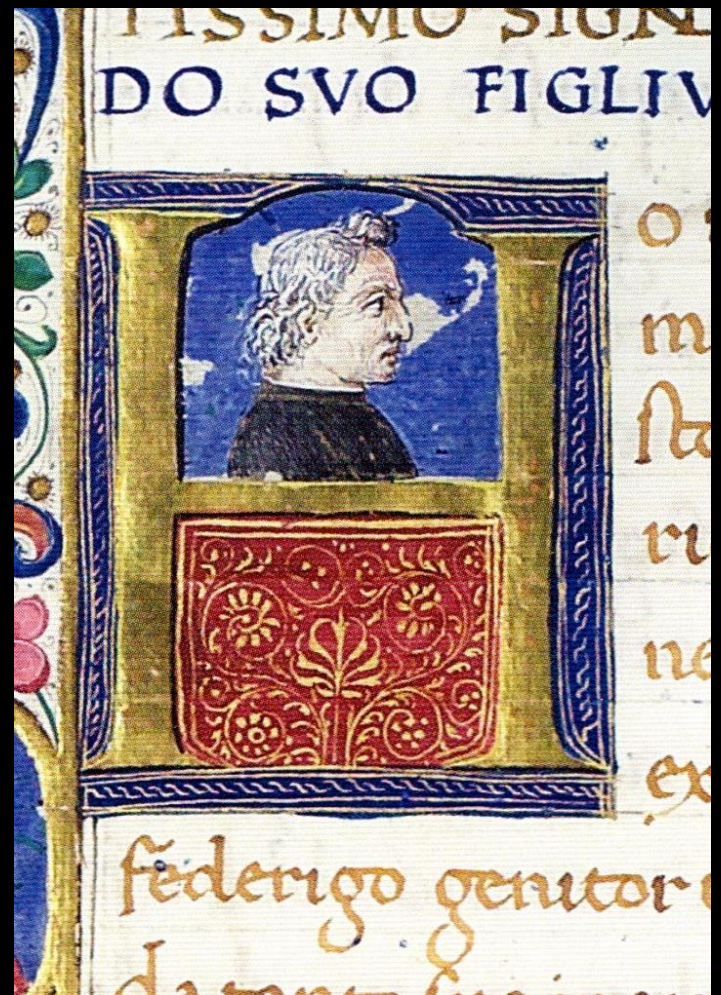 TISSIMO SIGN
DO SVO FIGLIV
H
o
m
sto
ri
ne
ex
federigo genitor